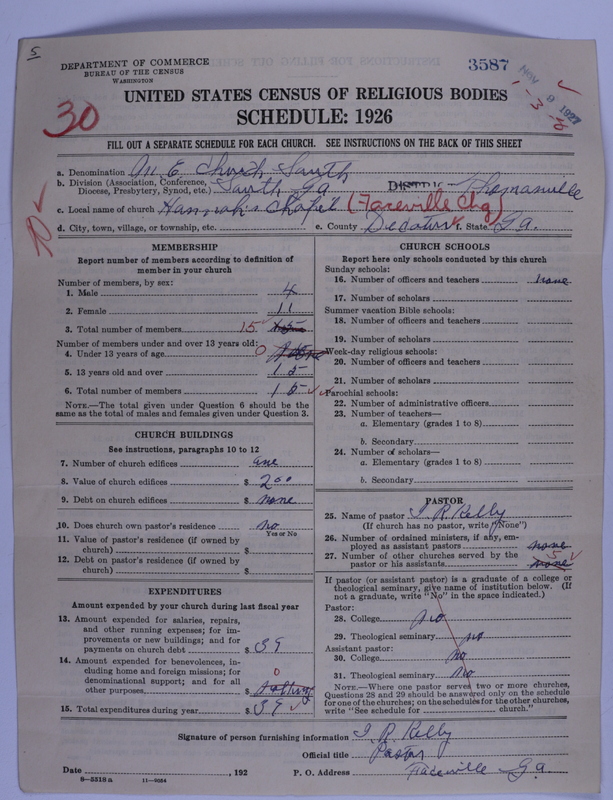 5
DEPARTMENT OF COMMERCE
BUREAU OF THE CENSUS
WASHINGTON
3587
NOV 9 1927
1-3-
30
UNITED STATES CENSUS OF RELIGIOUS BODIES
SCHEDULE: 1926
FILL OUT A SEPARATE SCHEDULE FOR EACH CHURCH. SEE INSTRUCTIONS ON THE BACK OF THIS SHEET
a. Denomination M E Church South
b. Division (Association, Conference, Diocese, Presbytery, Synod, etc.) South Ga DISTRIC Thomasville
c. Local name of church Hannah's Chapel (Faceville Chg)
d. City, town, village, or township, etc. e. County Decatur f. State Ga.
MEMBERSHIP
Report number of members according to definition of
member in your church
Number of members, by sex:
1. Male 4
2. Female 11
3. Total number of members 15 15
Number of members under and over 13 years old:
4. Under 13 years of age 0 None
5. 13 years old and over 15
6. Total number of members 15
NOTE.—The total given under Question 6 should be the
same as the total of males and females given under Question 3.
CHURCH BUILDINGS
See instructions, paragraphs 10 to 12
7. Number of church edifices one
8. Value of church edifices $ 200
9. Debt on church edifices $ none
10. Does church own pastor's residence no
Yes or No
11. Value of pastor's residence (if owned by
church) $
12. Debt on pastor's residence (if owned by
church) $
EXPENDITURES
Amount expended by your church during last fiscal year
13. Amount expended for salaries, repairs,
and other running expenses; for im-
provements or new buildings; and for
payments on church debt $ 39
14. Amount expended for benevolences, in-
cluding home and foreign missions; for
denominational support; and for all
other purposes $ 0 nothing
15. Total expenditures during year $ 39
CHURCH SCHOOLS
Report here only schools conducted by this church
Sunday schools:
16. Number of officers and teachers none
17. Number of scholars
Summer vacation Bible schools:
18. Number of officers and teachers
19. Number of scholars
Week-day religious schools:
20. Number of officers and teachers
21. Number of scholars
Parochial schools:
22. Number of administrative officers
23. Number of teachers—
a. Elementary (grades 1 to 8)
b. Secondary
24. Number of scholars—
a. Elementary (grades 1 to 8)
b. Secondary
PASTOR
25. Name of pastor I R Kelly
(If church has no pastor, write "None")
26. Number of ordained ministers, if any, em-
ployed as assistant pastors none
27. Number of other churches served by the
pastor or his assistants 5 none
If pastor (or assistant pastor) is a graduate of a college or
theological seminary, give name of institution below. (If
not a graduate, write "No" in the space indicated.)
Pastor:
28. College no
29. Theological seminary no
Assistant pastor:
30. College no
31. Theological seminary no
NOTE.—Where one pastor serves two or more churches,
Questions 28 and 29 should be answered only on the schedule
for one of the churches; on the schedules for the other churches,
write "See schedule for church."
Signature of person furnishing information I R Kelly
Official title Pastor
Date , 192 P. O. Address Faceville Ga.
8-5318a 11-9064